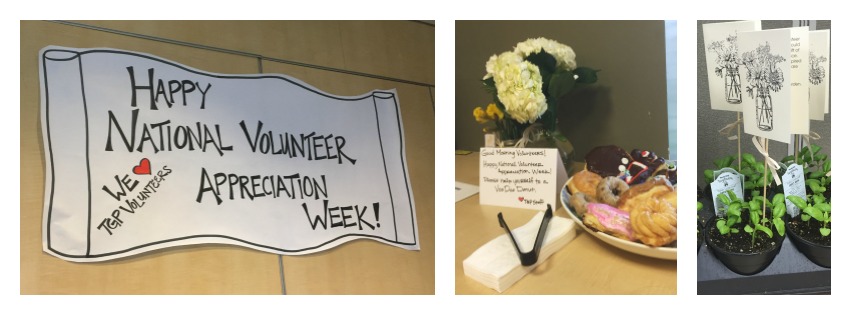 HAPPY
NATIONAL VOLUNTEER
APPRECIATION
WEEK!
WE ❤
TGP VOLUNTEERS
Good Morning Volunteers!
Happy National Volunteer
Appreciation Week!
Please help yourself to a
VooDoo Donut.
❤ TGP Staff